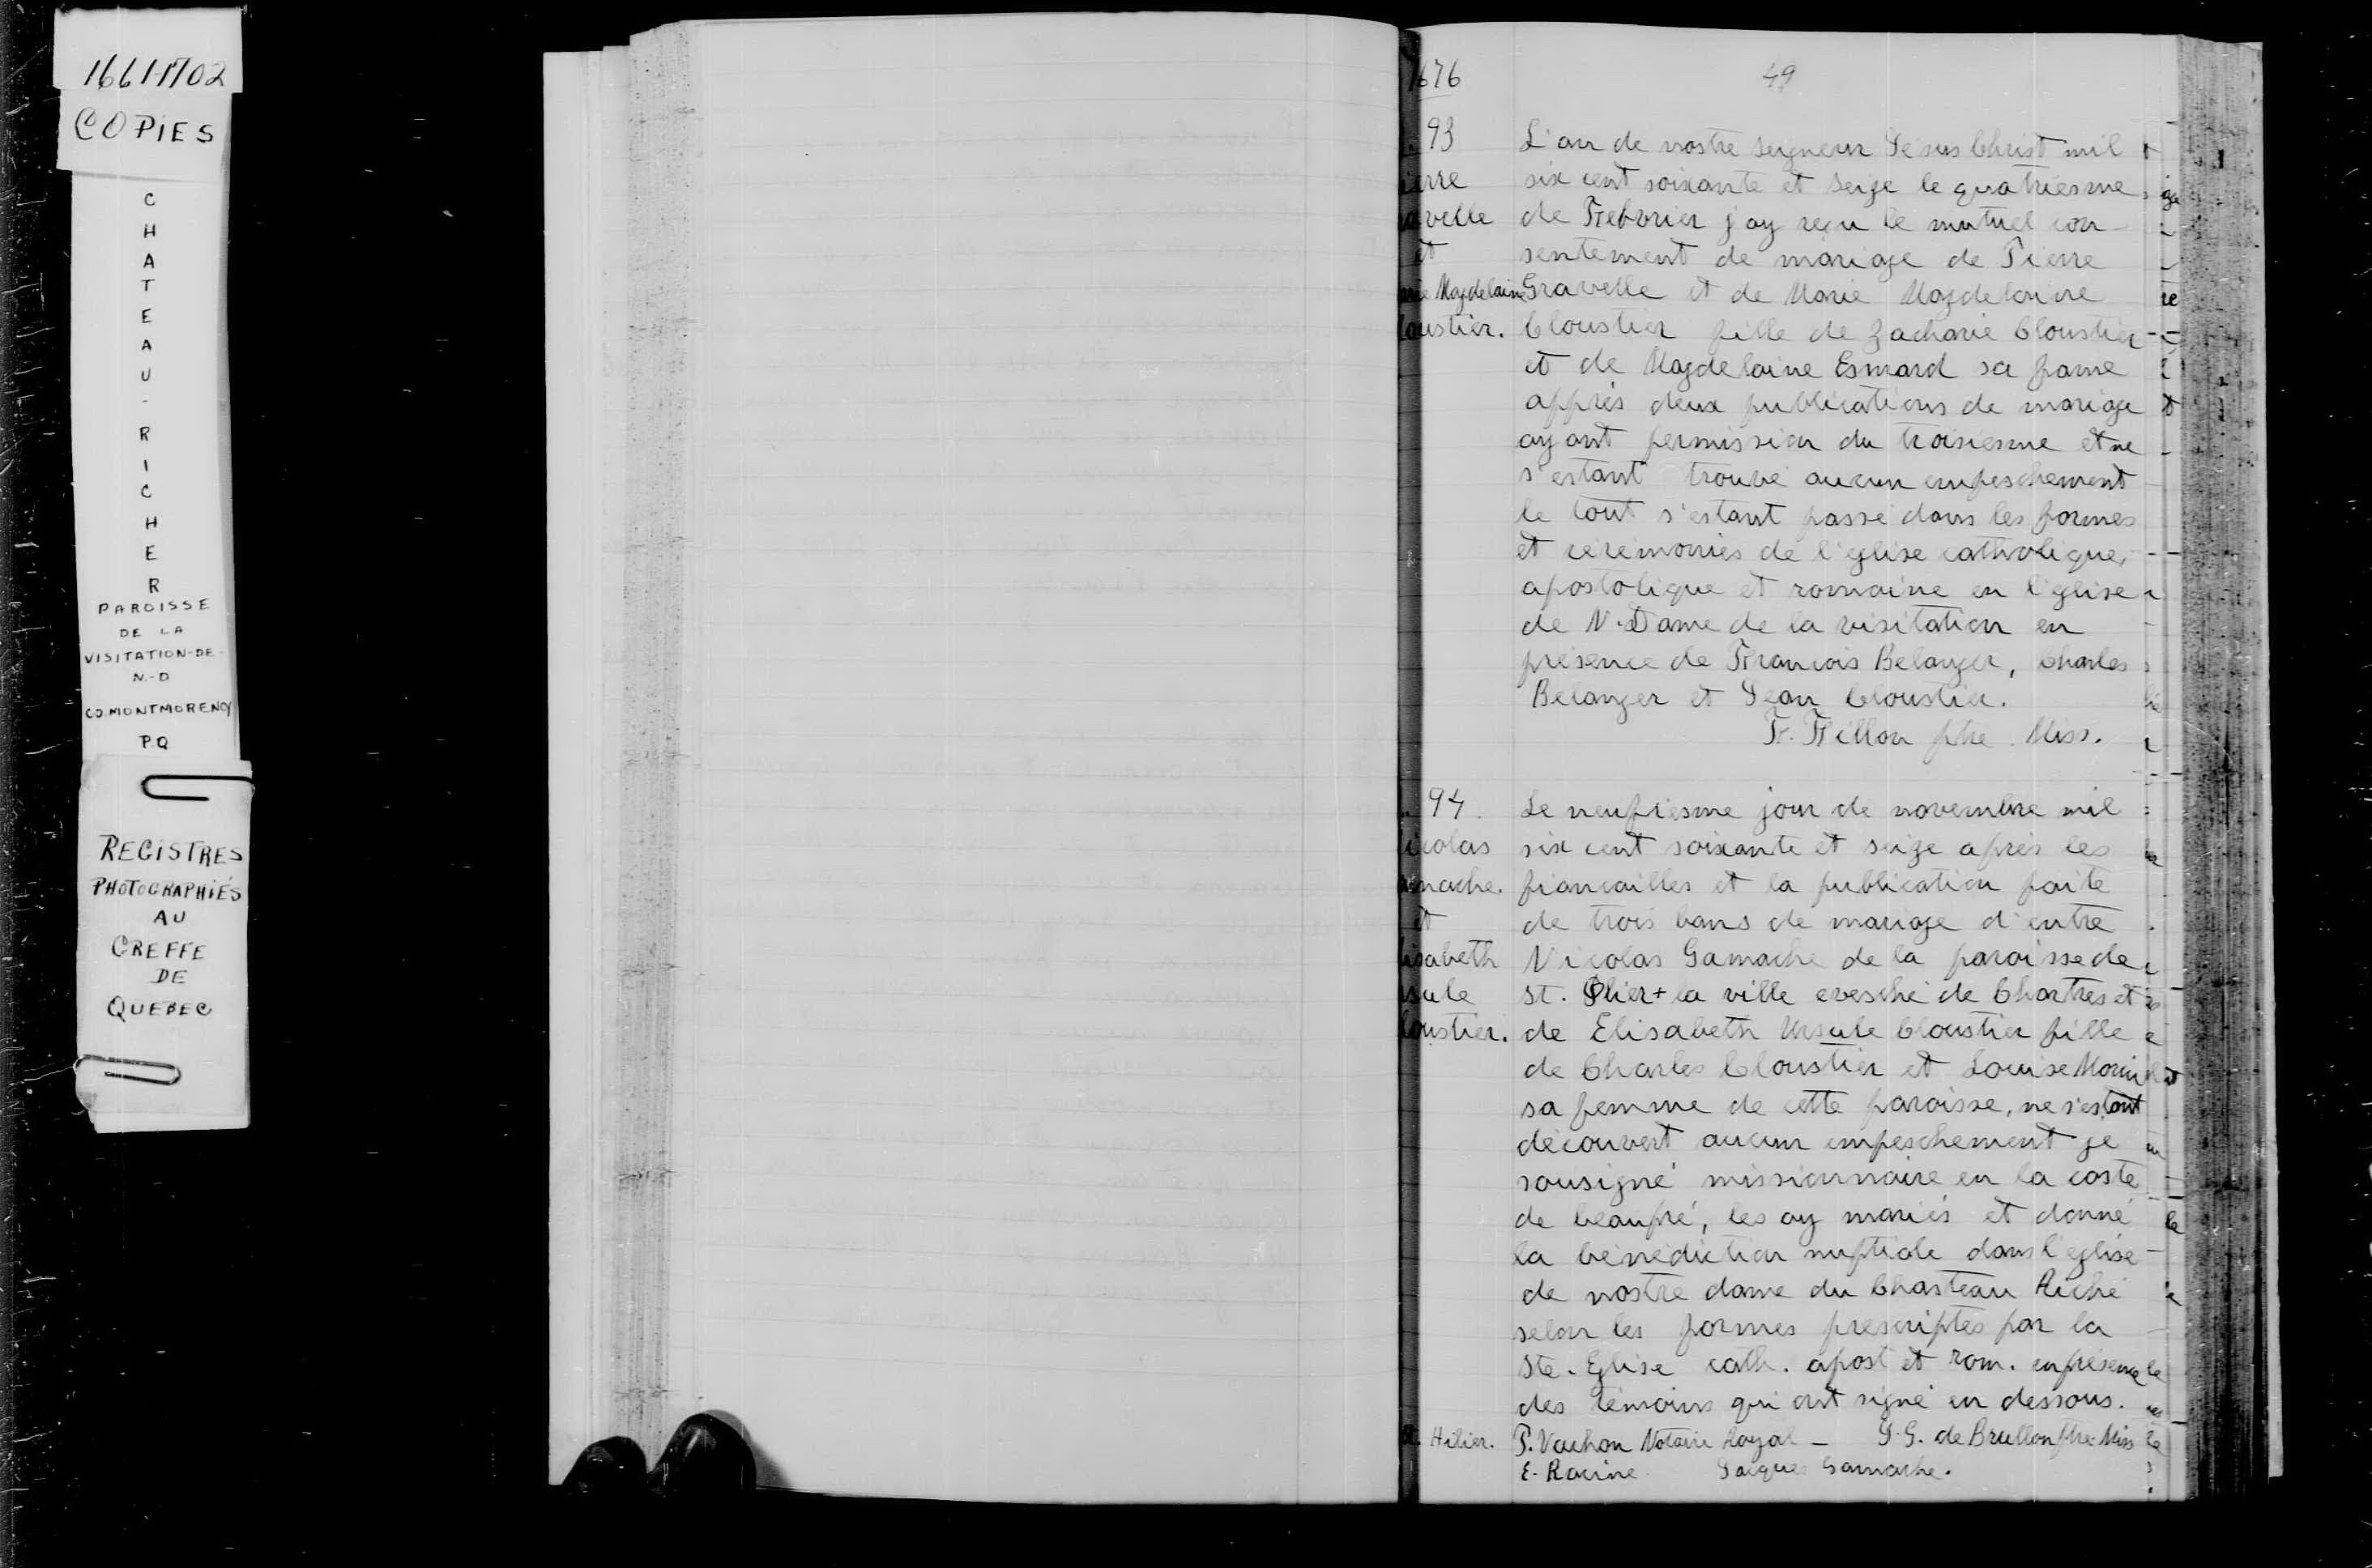 1661-1702
COPIES
CHATEAU-RICHER
PAROISSE
DE LA
VISITATION-DE-
N.-D
CO. MONTMORENCY
P.Q
REGISTRES
PHOTOGRAPHIÉS
AU
GREFFE
DE
QUEBEC
1676
49
93
ierre
avelle
et
Magdelaine
loustier.
L'an de nostre seigneur Jésus Christ mil
six cent soixante et seize le quatriesme
de Febvrier j'ay reçu le mutuel con-
sentement de mariage de Pierre
Gravelle et de Marie Magdelaine
Cloustier fille de Zacharie Cloustier
et de Magdelaine Esmard sa fame
apprès deux publications de mariage
ayant permission du troisiesme et ne
s'estant trouvé aucun empeschement
le tout s'estant passé dans les formes
et cérémonies de l'eglise catholique,
apostolique et romaine en l'eglise
de N. Dame de la visitation en
présence de Francois Belanger, Charles
Belanger et Jean Cloustier.
F. Fillon ptre Miss.
94.
icolas
mache.
et
isabeth
sule
loustier.
Le neufiesme jour de novembre mil
six cent soixante et seize après les
fiancailles et la publication faite
de trois bans de mariage d'entre
Nicolas Gamache de la paroisse de
St. Olier + la ville evesché de Chartres et
de Elisabeth Ursule Cloustier fille
de Charles Cloustier et Louise Morin
sa femme de cette paroisse, ne s'estant
découvert aucun empeschement je
sousigné missionnaire en la coste
de beaupré, les ay mariés et donné
la bénédiction nuptiale dans l'eglise
de nostre dame du Chasteau Riché
selon les formes prescriptes par la
Ste. Eglise cath. apost et rom. en présence
des témoins qui ont signé en dessous.
Hilier. P. Vachon Notaire Royal — J. G. de Brullon ptre Miss
E. Racine Jacques Gamache.